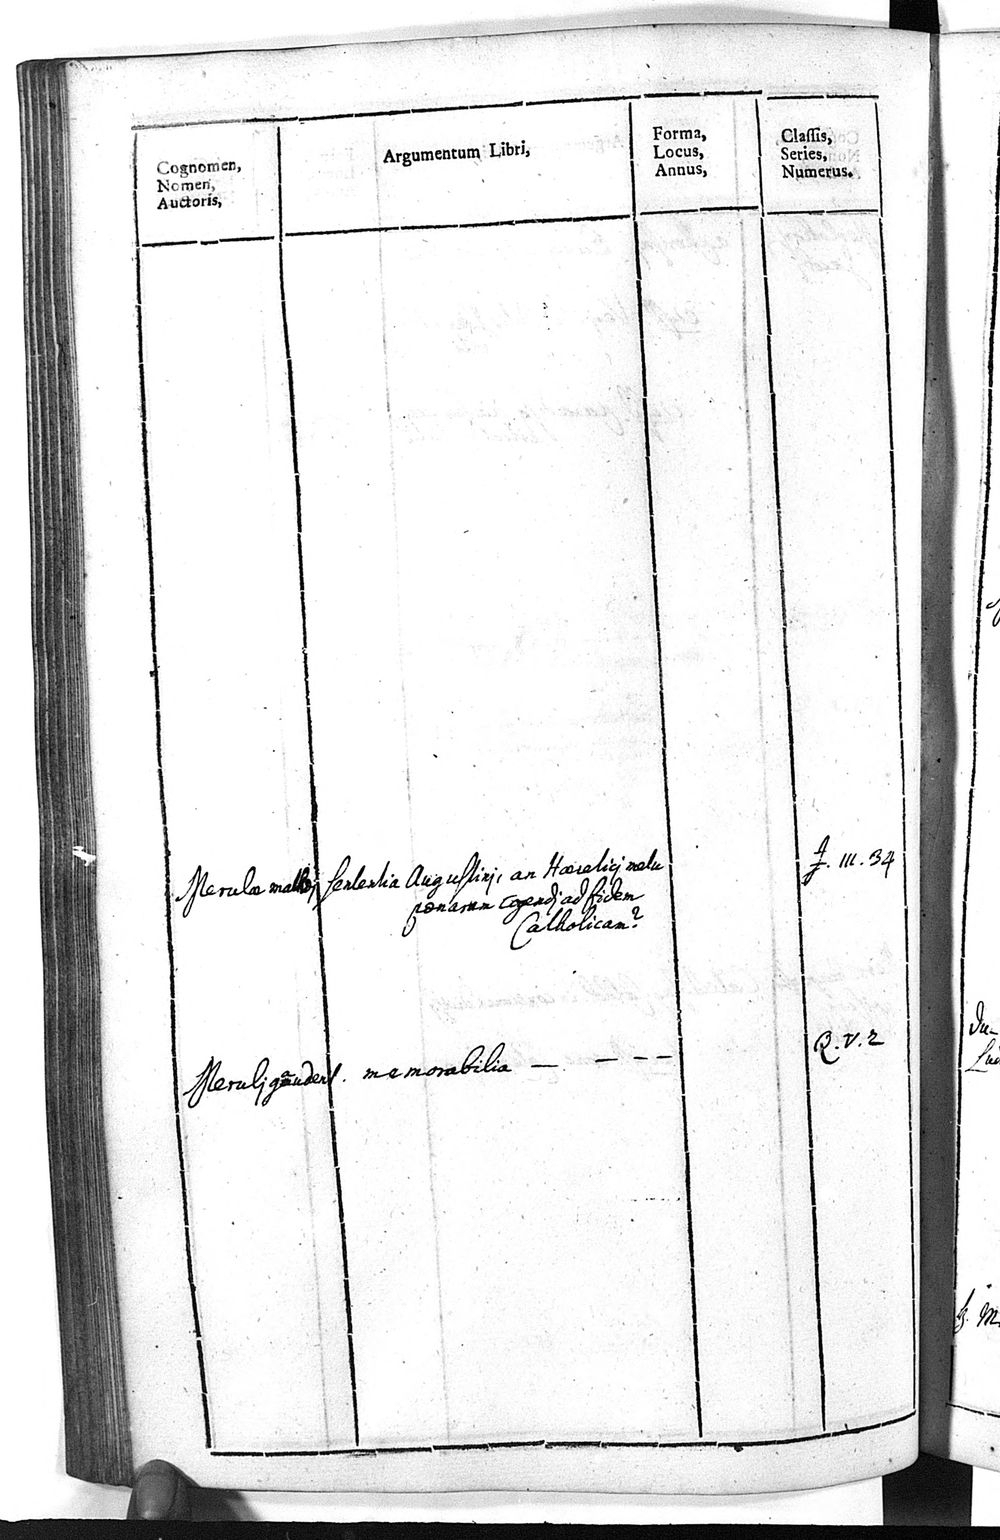 Cognomen,
Nomen,
Auctoris,
Argumentum Libri,
Forma,
Locus,
Annus,
Classis,
Series,
Numerus.
Merulæ sententia Augustini, an Hæretici metu
pœnarum cogendi ad fidem
Catholicam?
III. 34
Meruli gaudent. memorabilia — — - -
Q. V. 2